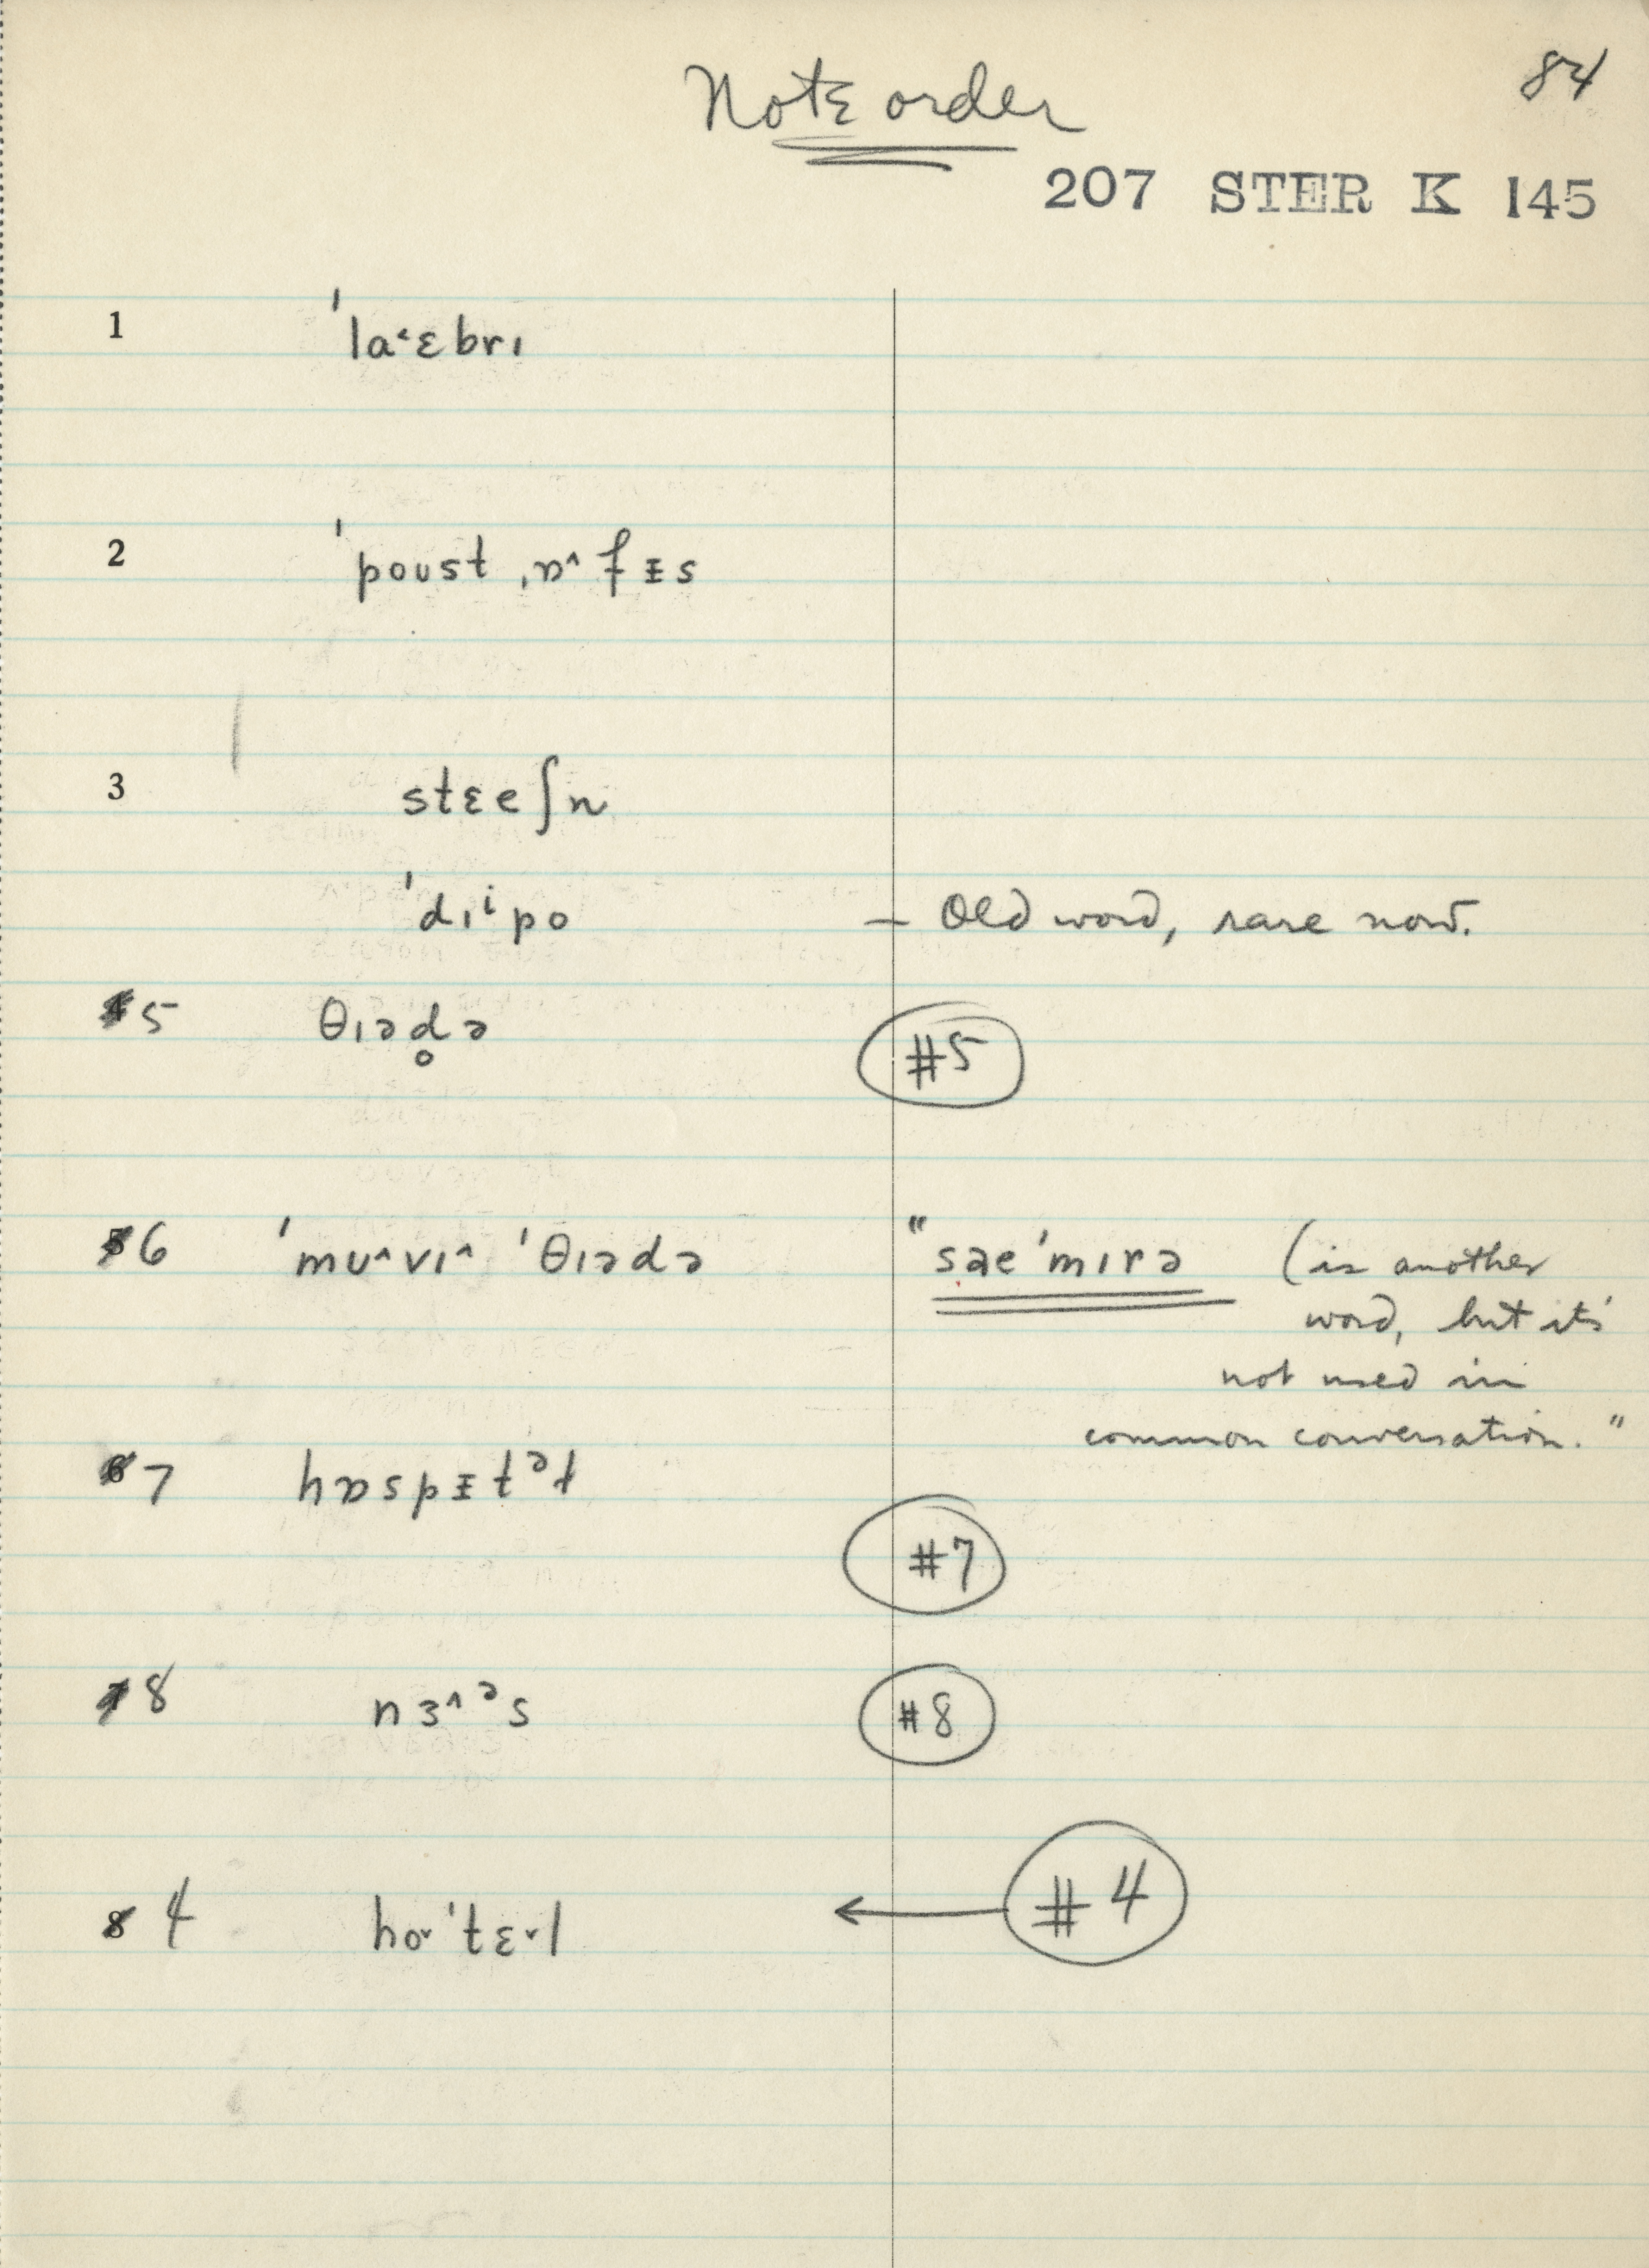 Note order
84
207 STER K 145
1 ˈlaˑ˂ɛbrɪ
2 ˈpoʊst ˌɒ^fᵻs
3 stɛeʃn
ˈdɪⁱpo — Old word, rare now.
5 θɪəd̥ə #5
6 ˈmʊ^vɪ^ ˈθɪədə "sæeˈmɪrə (is another
word, but it's
not used in
common conversation."
7 hɒspᵻtᵊɫ
#7
8 nɜ^ᵊs #8
4 hoˇˈtɛˇl ← #4